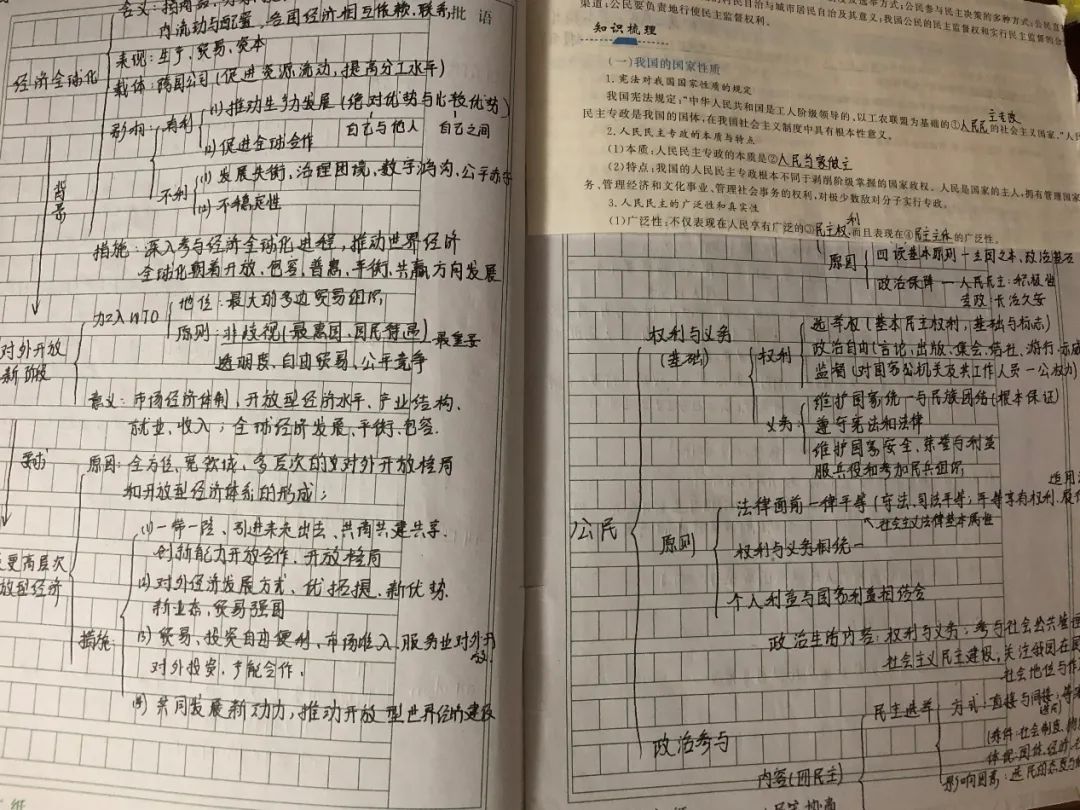 含义：
批 语
内流动与配置，各国经济相互依赖、联系
经济全球化
表现：生产、贸易、资本
载体：跨国公司（促进资源流动，提高分工水平）
影响：
有利
(1)推动生产力发展（绝对优势与比较优势）
自己与他人 自己之间
(2)促进全球合作
不利
(1)发展失衡，治理困境，数字鸿沟，公平赤字
(2)不稳定性
背景
措施：深入参与经济全球化进程，推动世界经济
全球化朝着开放、包容、普惠、平衡、共赢方向发展
对外开放
新阶段
加入WTO
地位：最大的多边贸易组织
原则：非歧视（最惠国、国民待遇）最重要
透明度、自由贸易、公平竞争
意义：市场经济体制，开放型经济水平、产业结构、
就业、收入；全球经济发展、平衡、包容.
更高层次
放型经济
原因：全方位、宽领域、多层次的对外开放格局
和开放型经济体系的形成；
措施：
(1)一带一路、引进来走出去、共商共建共享、
创新能力开放合作、开放格局
(2)对外经济发展方式、优拓提、新优势、
新业态、贸易强国
(3)贸易、投资自由便利，市场准入、服务业对外开放
对外投资，产能合作.
(4)共同发展新动力，推动开放型世界经济建设
渠道；公民要负责地行使民主监督权利。
村民自治与城市居民自治及其意义；我国公民的民主监督权和实行民主监督的合
知识梳理
（一）我国的国家性质
1.宪法对我国国家性质的规定
我国宪法规定：“中华人民共和国是工人阶级领导的，以工农联盟为基础的①人民民主专政的社会主义国家。”人民
民主专政是我国的国体，在我国社会主义制度中具有根本性意义。
2.人民民主专政的本质与特点
(1)本质：人民民主专政的本质是②人民当家做主
(2)特点：我国的人民民主专政根本不同于剥削阶级掌握的国家政权。人民是国家的主人，拥有管理国家
务、管理经济和文化事业、管理社会事务的权利，对极少数敌对分子实行专政。
3.人民民主的广泛性和真实性
(1)广泛性：不仅表现在人民享有广泛的③民主权利 而且表现在④民主主体的广泛性。
原因
四项基本原则－立国之本，政治基石
政治保障－人民民主：积极性
专政：长治久安
公民
权利与义务
（基础）
权利
选举权（基本民主权利，基础与标志）
政治自由（言论、出版、集会、结社、游行、示威
监督（对国家公机关及其工作人员－公权力）
义务
维护国家统一与民族团结（根本保证）
遵守宪法和法律
维护国家安全、荣誉与利益
服兵役和参加民兵组织
原则
法律面前一律平等（守法、司法平等；平等享有权利、履行
社会主义法律基本属性
适用
权利与义务相统一
个人利益与国家利益相结合
政治参与
政治生活内容：权利与义务；参与社会公共管理
社会主义民主建设；关注我国在国
社会地位与作
内容（四民主）
民主选举
方式：直接与间接；等
影响因素：选民
民主协商